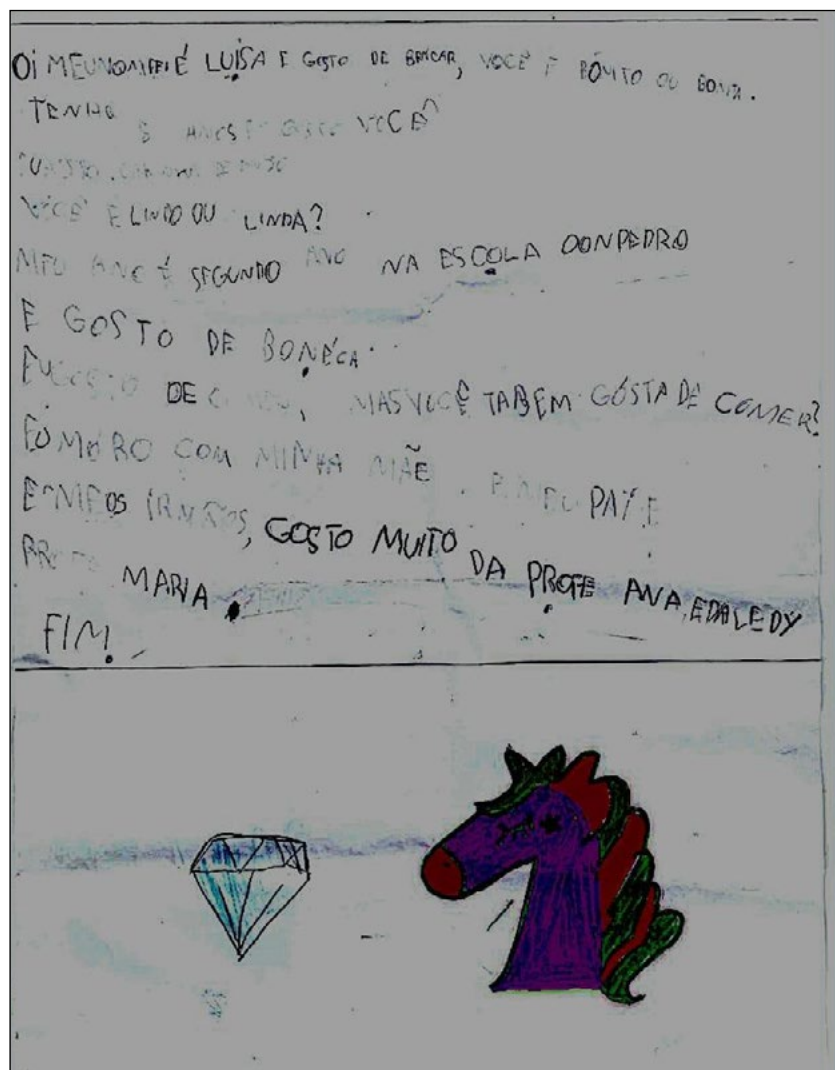 Oi MEU NOME É LUÍSA E GOSTO DE BRICAR, VOCÊ É BÓNITO OU BONITA.
TENHO 8 ANOS E GOSTO VOCÊ
VOCÊ É LINDO OU LINDA?
MEU ANO É SEGUNDO ANO NA ESCOLA DONPEDRO
E GOSTO DE BONÉCA.
EU GOSTO DE , MAS VOCÊ TABEM GÓSTA DE COMER?
EU MORO COM MINHA MÃE. E MEU PAI E
E MEOS IRMÃOS, GOSTO MUITO DA PROFE ANA, EDALEDY
MARIA.
FIM.